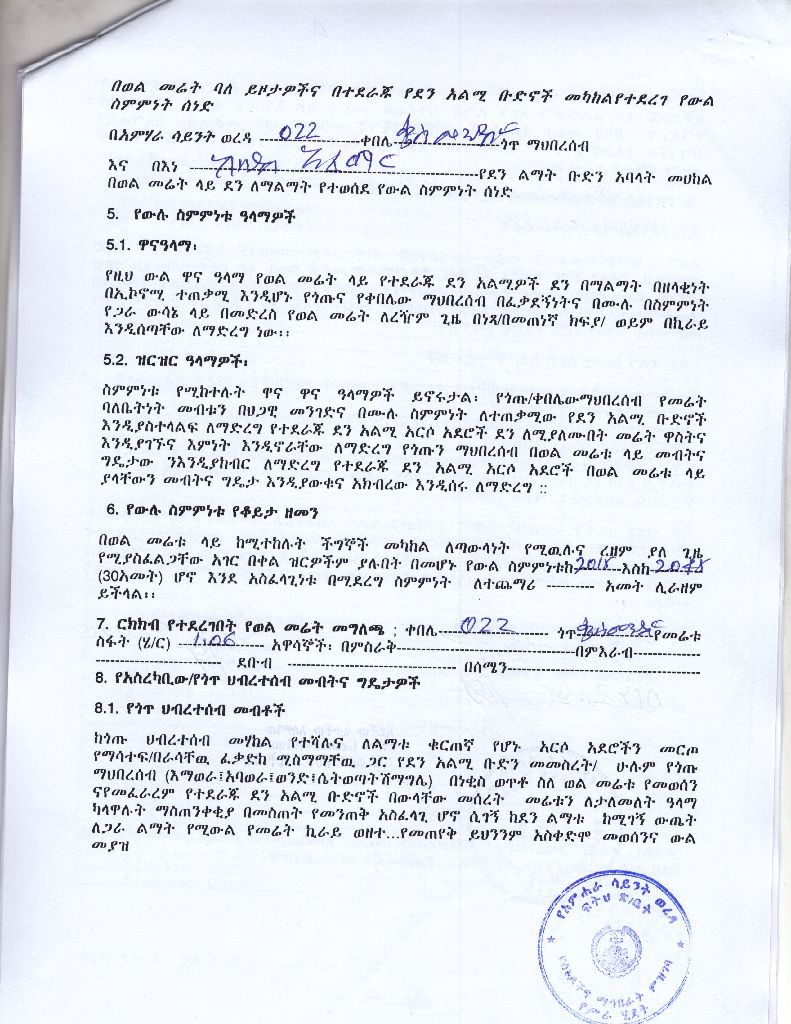 በወል መሬት ባለ ይዞታዎችና በተደራጁ የደን አልሚ ቡድኖች መካከልየተደረገ የውል
ስምምነት ሰነድ
በአምሃራ ሳይንት ወረዳ ------------022------------ቀበሌ ጎጥ ማህበረሰብ
እና በእነ ----------የደን ልማት ቡድን አባላት መሀከል
በወል መሬት ላይ ደን ለማልማት የተወሰደ የውል ስምምነት ሰነድ
5. የውሉ ስምምነቱ ዓላማዎች
5.1. ዋናዓላማ፡
የዚህ ውል ዋና ዓላማ የወል መሬት ላይ የተደራጁ ደን አልሚዎች ደን በማልማት በዘላቂነት
በኢኮኖሚ ተጠቃሚ እንዲሆኑ የጎጡና የቀበሌው ማህበረሰብ በፈቃደኝነትና በሙሉ በስምምነት
የጋራ ውሳኔ ላይ በመድረስ የወል መሬት ለረዥም ጊዜ በነጻ/በመጠነኛ ክፍያ/ ወይም በኪራይ
እንዲሰጣቸው ለማድረግ ነው፡፡
5.2. ዝርዝር ዓላማዎች፡
ስምምነቱ የሚከተሉት ዋና ዋና ዓላማዎች ይኖሩታል፡ የጎጡ/ቀበሌውማህበረሰብ የመሬት
ባለቤትነት መብቱን በህጋዊ መንገድና በሙሉ ስምምነት ለተጠቃሚው የደን አልሚ ቡድኖች
እንዲያስተላልፍ ለማድረግ የተደራጁ ደን አልሚ አርሶ አደሮች ደን ለሚያለሙበት መሬት ዋስትና
እንዲያገኙና እምነት እንዲኖራቸው ለማድረግ የጎጡን ማህበረሰብ በወል መሬቱ ላይ መብትና
ግዴታው ንእንዲያከብር ለማድረግ የተደራጁ ደን አልሚ አርሶ አደሮች በወል መሬቱ ላይ
ያላቸውን መብትና ግዴታ እንዲያውቁና አክብረው እንዲሰሩ ለማድረግ ።
6. የውሉ ስምምነቱ የቆይታ ዘመን
በወል መሬቱ ላይ ከሚተከሉት ችግኞች መካከል ለጣውላነት የሚዉሉና ረዘም ያለ ጊዜ
የሚያስፈልጋቸው አገር በቀል ዝርዎችም ያሉበት በመሆኑ የውል ስምምነቱከ-2018--እስከ-2048
(30አመት) ሆኖ እንደ አስፈላጊነቱ በሚደረግ ስምምነት ለተጨማሪ ---------- አመት ሊራዘም
ይችላል፡፡
7. ርክክብ የተደረገበት የወል መሬት መግለጫ ; ቀበሌ----022------ ጎጥ የመሬቱ
ስፋት (ሄ/ር) ---1.06------ አዋሳኞች፡ በምስራቅ------------------------------በምእራብ------------
---------------------- ደቡብ ----------------------------- በሰሜን---------------------------------
8. የአስረካቢው/የጎጥ ህብረተሰብ መብትና ግዴታዎች
8.1. የጎጥ ህብረተሰብ መብቶች
ከጎጡ ህብረተሰብ መሃከል የተሻሉና ለልማቱ ቁርጠኛ የሆኑ አርሶ አደሮችን መርጦ
የማሳተፍ/በራሳቸዉ ፈቃድከ ሚስማማቸዉ ጋር የደን አልሚ ቡድን መመስረት/ ሁሉም የጎጡ
ማህበረሰብ (እማወራ፤አባወራ፤ወንድ፤ሴትወጣትሽማግሌ) በነቂስ ወጥቶ ስለ ወል መሬቱ የመወሰን
ናየመፈራረም የተደራጁ ደን አልሚ ቡድኖች በውላቸው መሰረት መሬቱን ለታለመለት ዓላማ
ካላዋሉት ማስጠንቀቂያ በመስጠት የመንጠቅ አስፈላጊ ሆኖ ሲገኝ ከደን ልማቱ ከሚገኝ ውጤት
ለጋራ ልማት የሚውል የመሬት ኪራይ ወዘተ...የመጠየቅ ይህንንም አስቀድሞ መወሰንና ውል
መያዝ
የአምሐራ ሳይንት ወረዳ
ፍትህ ጽ/ቤት